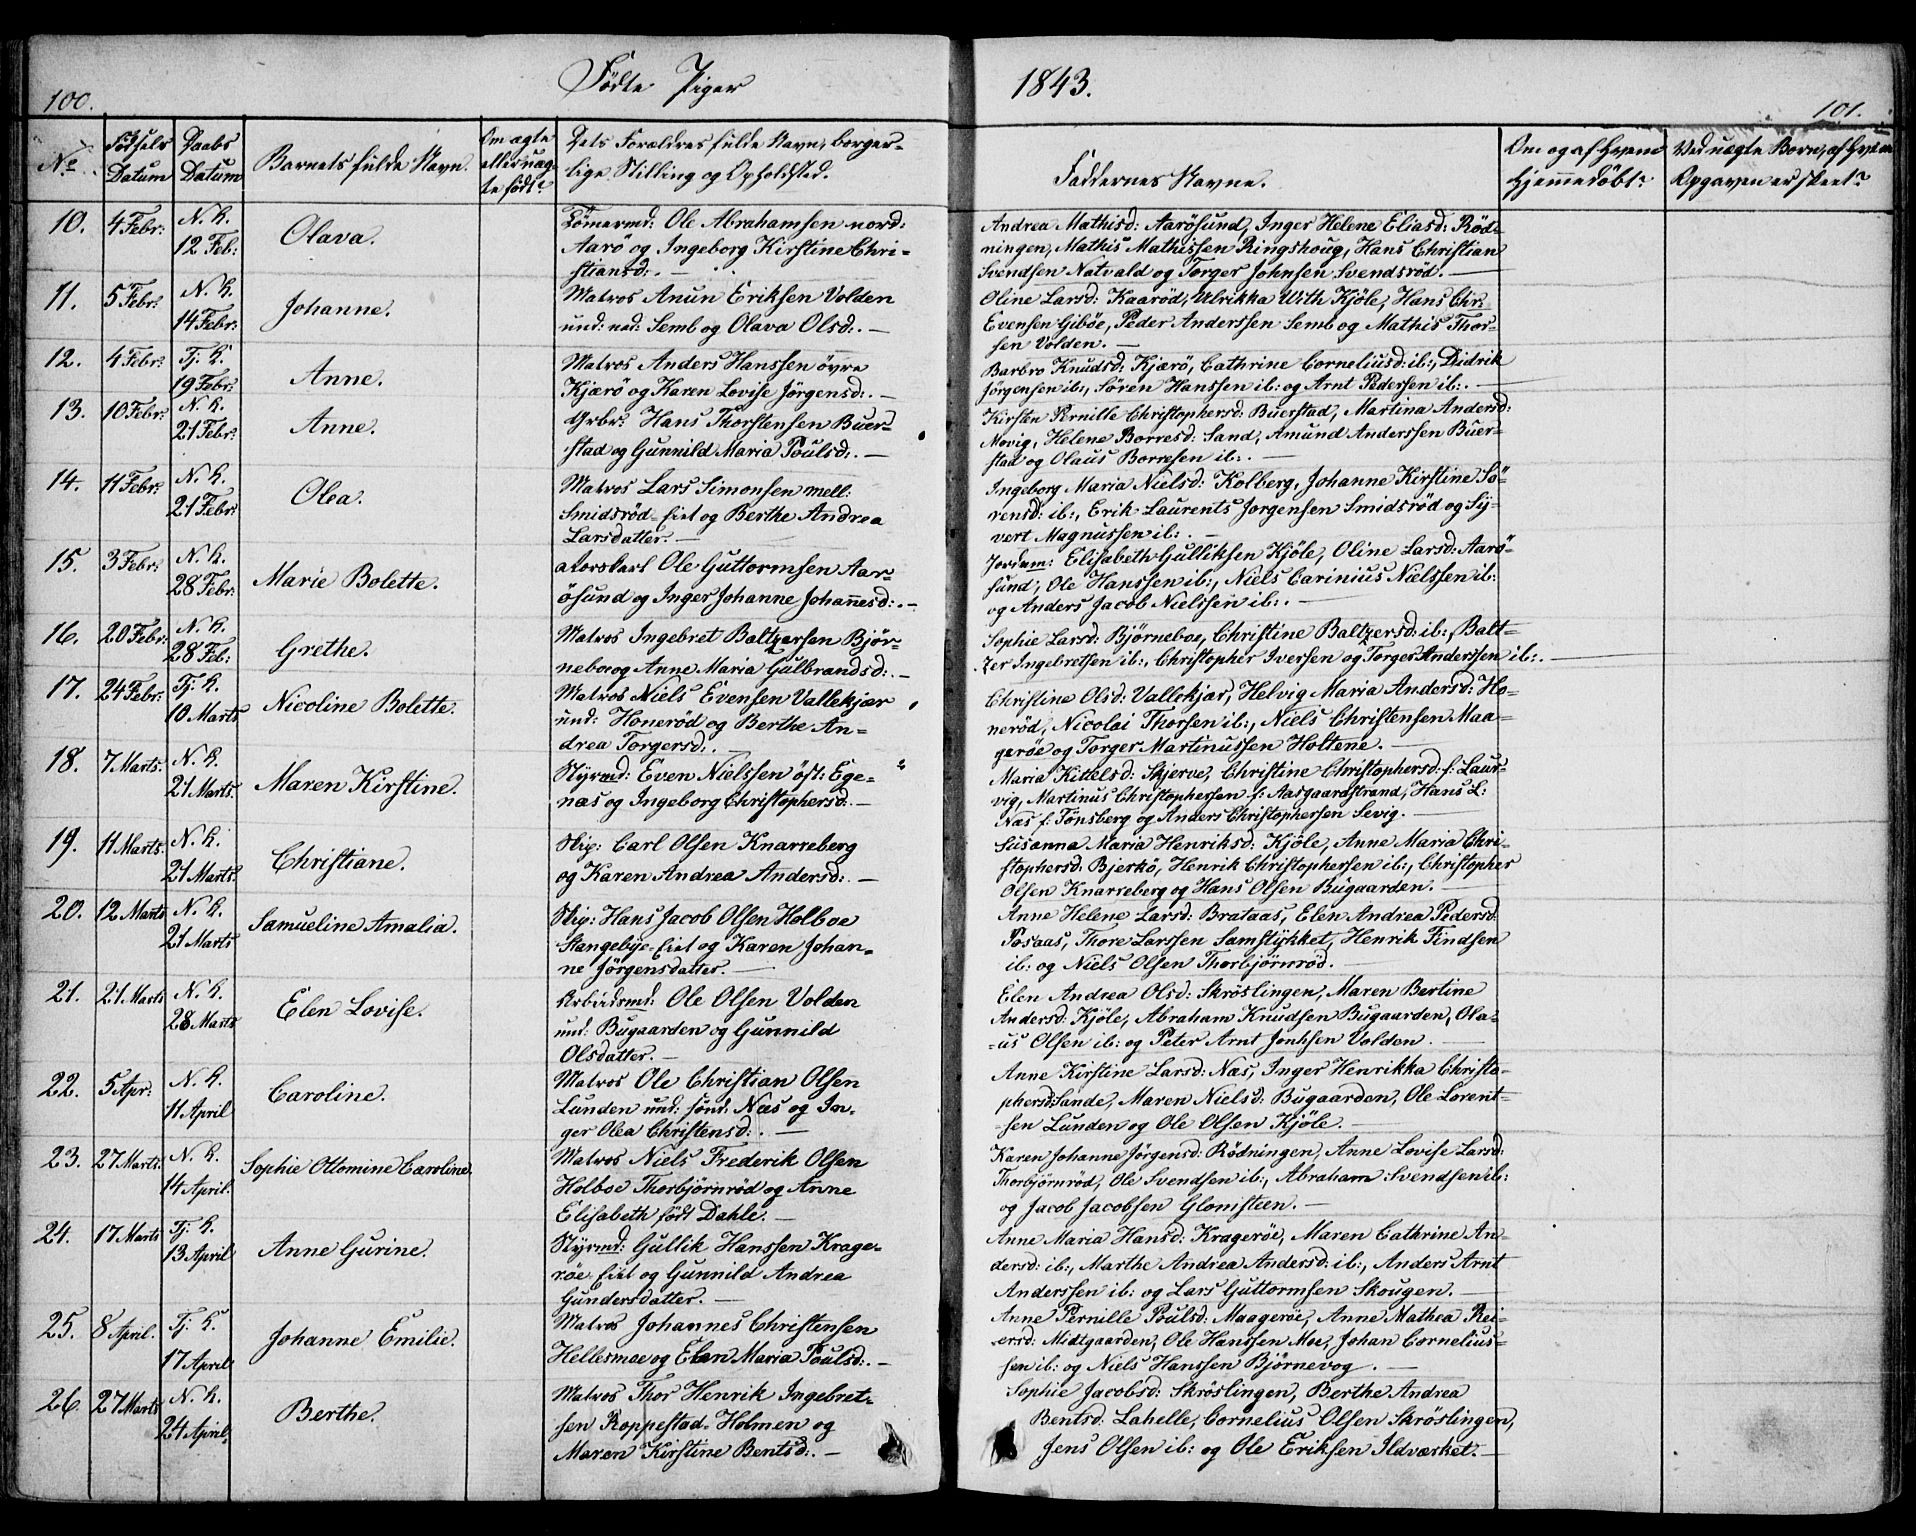 100.
Fødte Piger
1843.
101.
No.
Fødsels Datum
Daabs Datum
Barnets fulde Navn.
Om ægte eller uægte født?
Dets Forældres fulde Navn, borgerlige Stilling og Opholdsted.
Faddernes Navne.
Om og af hvem hjemmedøbt?
Ved uægte Børn, af hvem Opgaven er skeet?
10. 4 Febr: N. K. 12 Feb: Olava.
Tømermd: Ole Abrahamsen nord:
Aarö og Ingeborg Kirstine Chri-
stiansd:. —
Andrea Mathisd: Aarösund, Inger Helene Eliasd: Röd-
ningen, Mathis Mathissen Ringshoug, Hans Christian
Svendsen Natvald og Torger Johnsen Svendsröd. —
11. 5 Febr: N. K. 14 Febr: Johanne.
Matros Anun Eriksen Volden
und: ned: Semb og Olava Olsd:. —
Oline Larsd: Kaaröd, Ulrikka With Kjöle, Hans Chr:
Evensen Giböe, Peder Anderssen Semb og Mathis Thor-
sen Volden. —
12. 4 Febr: Tj. K. 19 Febr: Anne.
Matros Anders Hanssen övre
Kjærö og Karen Lovise Jörgensd:. —
Barbro Knudsd: Kjærö, Cathrine Corneliusd: ib:, Didrik
Jörgensen ib:, Sören Hanssen ib: og Arnt Pedersen ib:. —
13. 10 Febr: N. K. 21 Febr: Anne.
Grbr: Hans Thorstensen Buer-
stad og Gunnild Maria Poulsd:. —
Kirsten Pernille Christophersd: Buerstad, Martina Andersd:
Movig, Helene Borresd: Sand, Amund Anderssen Buer-
stad og Olaus Borresen ib:. —
14. 11 Febr: N. K. 21 Febr: Olea.
Matros Lars Simonsen mell:
Smidsröd-eiet og Berthe Andrea
Larsdatter. —
Ingeborg Maria Nielsd: Kolberg, Johanne Kirstine Sö-
rensd: ib:, Erik Laurents Jorgensen Smidsröd og Sy-
vert Magnussen ib:. —
15. 3 Febr: N. K. 28 Febr: Marie Bolette.
Ole Guttormsen Aar-
ösund og Inger Johanne Johannesd:. —
Jordem: Elisabeth Gulliksen Kjöle, Oline Larsd: Aarö-
sund, Ole Hanssen ib:, Niels Carinius Nielssen ib:
og Anders Jacob Nielssen ib:. —
16. 20 Febr: N. K. 28 Feb: Grethe.
Matros Ingebret Baltzersen Bjør-
neboe og Anne Maria Gulbrandsd:. —
Sophie Larsd: Bjørneboe, Christine Baltzersd: ib:, Balt-
zer Ingebretsen ib:, Christopher Iversen og Torger Anderssen ib:. —
17. 24 Febr: Tj. K. 10 Marts Nicoline Bolette.
Matros Niels Evensen Vallekjær
und: Honeröd og Berthe An-
drea Torgersd:. —
Christine Olsd: Vallekjær, Helvig Maria Andersd: Ho-
neröd, Nicolai Thorsen ib:, Niels Christensen Maa-
geröe og Torger Martinussen Holtene. —
18. 7 Marts. N. K. 21 Marts. Maren Kirstine.
Styrmd: Even Nielssen öst: Ege-
næs og Ingeborg Christophersd:. —
Maria Kittelsd: Skjerve, Christine Christophersd: f: Laur-
vig, Martinus Christophersen f: Aasgaardstrand, Hans L:
Næs f: Tönsberg og Anders Christophersen Sevig. —
19. 11 Marts. N. K. 21 Marts. Christiane.
Skip: Carl Olsen Knarreberg
og Karen Andrea Andersd:. —
Susanna Maria Henriksd: Kjöle, Anne Maria Chri-
stophersd: Bjerkö, Henrik Christophersen ib:, Christopher
Olsen Knarreberg og Hans Olsen Bugaarden. —
20. 12 Marts N. K. 21 Marts Samueline Amalia.
Skip: Hans Jacob Olsen Holboe
Stangebye-eiet og Karen Johan-
ne Jörgensdatter. —
Anne Helene Larsd: Brataas, Elen Andrea Pedersd:
Posaas, Thore Larssen Samstykket, Henrik Findsen
ib: og Niels Olsen Thorbjørnrød. —
21. 21. Marts N. K. 28 Marts Elen Lovise.
Arbeidsmd: Ole Olsen Volden
und: Bugaarden og Gunnild
Olsdatter. —
Elen Andrea Olsd: Skröslingen, Maren Bertine
Andersd: Kjöle, Abraham Knudsen Bugaarden, Ola-
us Olsen ib: og Peter Arnt Jonhsen Volden. —
22. 5 Apr: N. K. 11 April Caroline.
Matros Ole Christian Olsen
Lunden und: sönd: Næs og In-
ger Olea Christensd:. —
Anne Kirstine Larsd: Næs, Inger Henrikka Christo-
phersd: Sande, Maren Nielsd: Bugaarden, Ole Lorent-
sen Lunden og Ole Olsen Kjöle. —
23. 27 Marts. N. K. 14 April. Sophie Ottomine Caroline.
Matros Niels Frederik Olsen
Holboe Thorbjörnröd og Anne
Elisabeth født Dahle. —
Karen Johanne Jørgensd: Rödningen, Anne Lovise Larsd:
Thorbjörnröd, Ole Svendsen ib:, Abraham Svendsen ib:
og Jacob Jacobsen Glomsteen. —
24. 17 Marts Tj. K. 13 April Anne Gurine.
Styrmd: Gullik Hanssen Krage-
röe eiet og Gunnild Andrea
Gundersdatter. —
Anne Maria Hansd: Krageröe, Maren Cathrine An-
dersd: ib:, Marthe Andrea Andersd: ib:, Anders Arnt
Anderssen ib: og Lars Guttormsen Skougen. —
25. 8 April. Tj. K. 17 April Johanne Emilie.
Matros Johannes Christensen
Hellesmoe og Elen Maria Poulsd:. —
Anne Pernille Poulsd: Maageröe, Anne Mathea Rei-
ersd: Midtgaarden, Ole Hanssen Moe, Johan Cornelius-
sen ib: og Niels Hanssen Bjørnevog. —
26. 27 Marts N. K. 24 April. Berthe.
Matros Thor Henrik Ingebret-
sen Roppestad-Holmen og
Maren Kirstine Bentsd:. —
Sophie Jacobsd: Skröslingen, Berthe Andrea
Bentsd: Lahelle, Cornelius Olsen Skröslingen,
Jens Olsen ib: og Ole Eriksen Ildværket. —